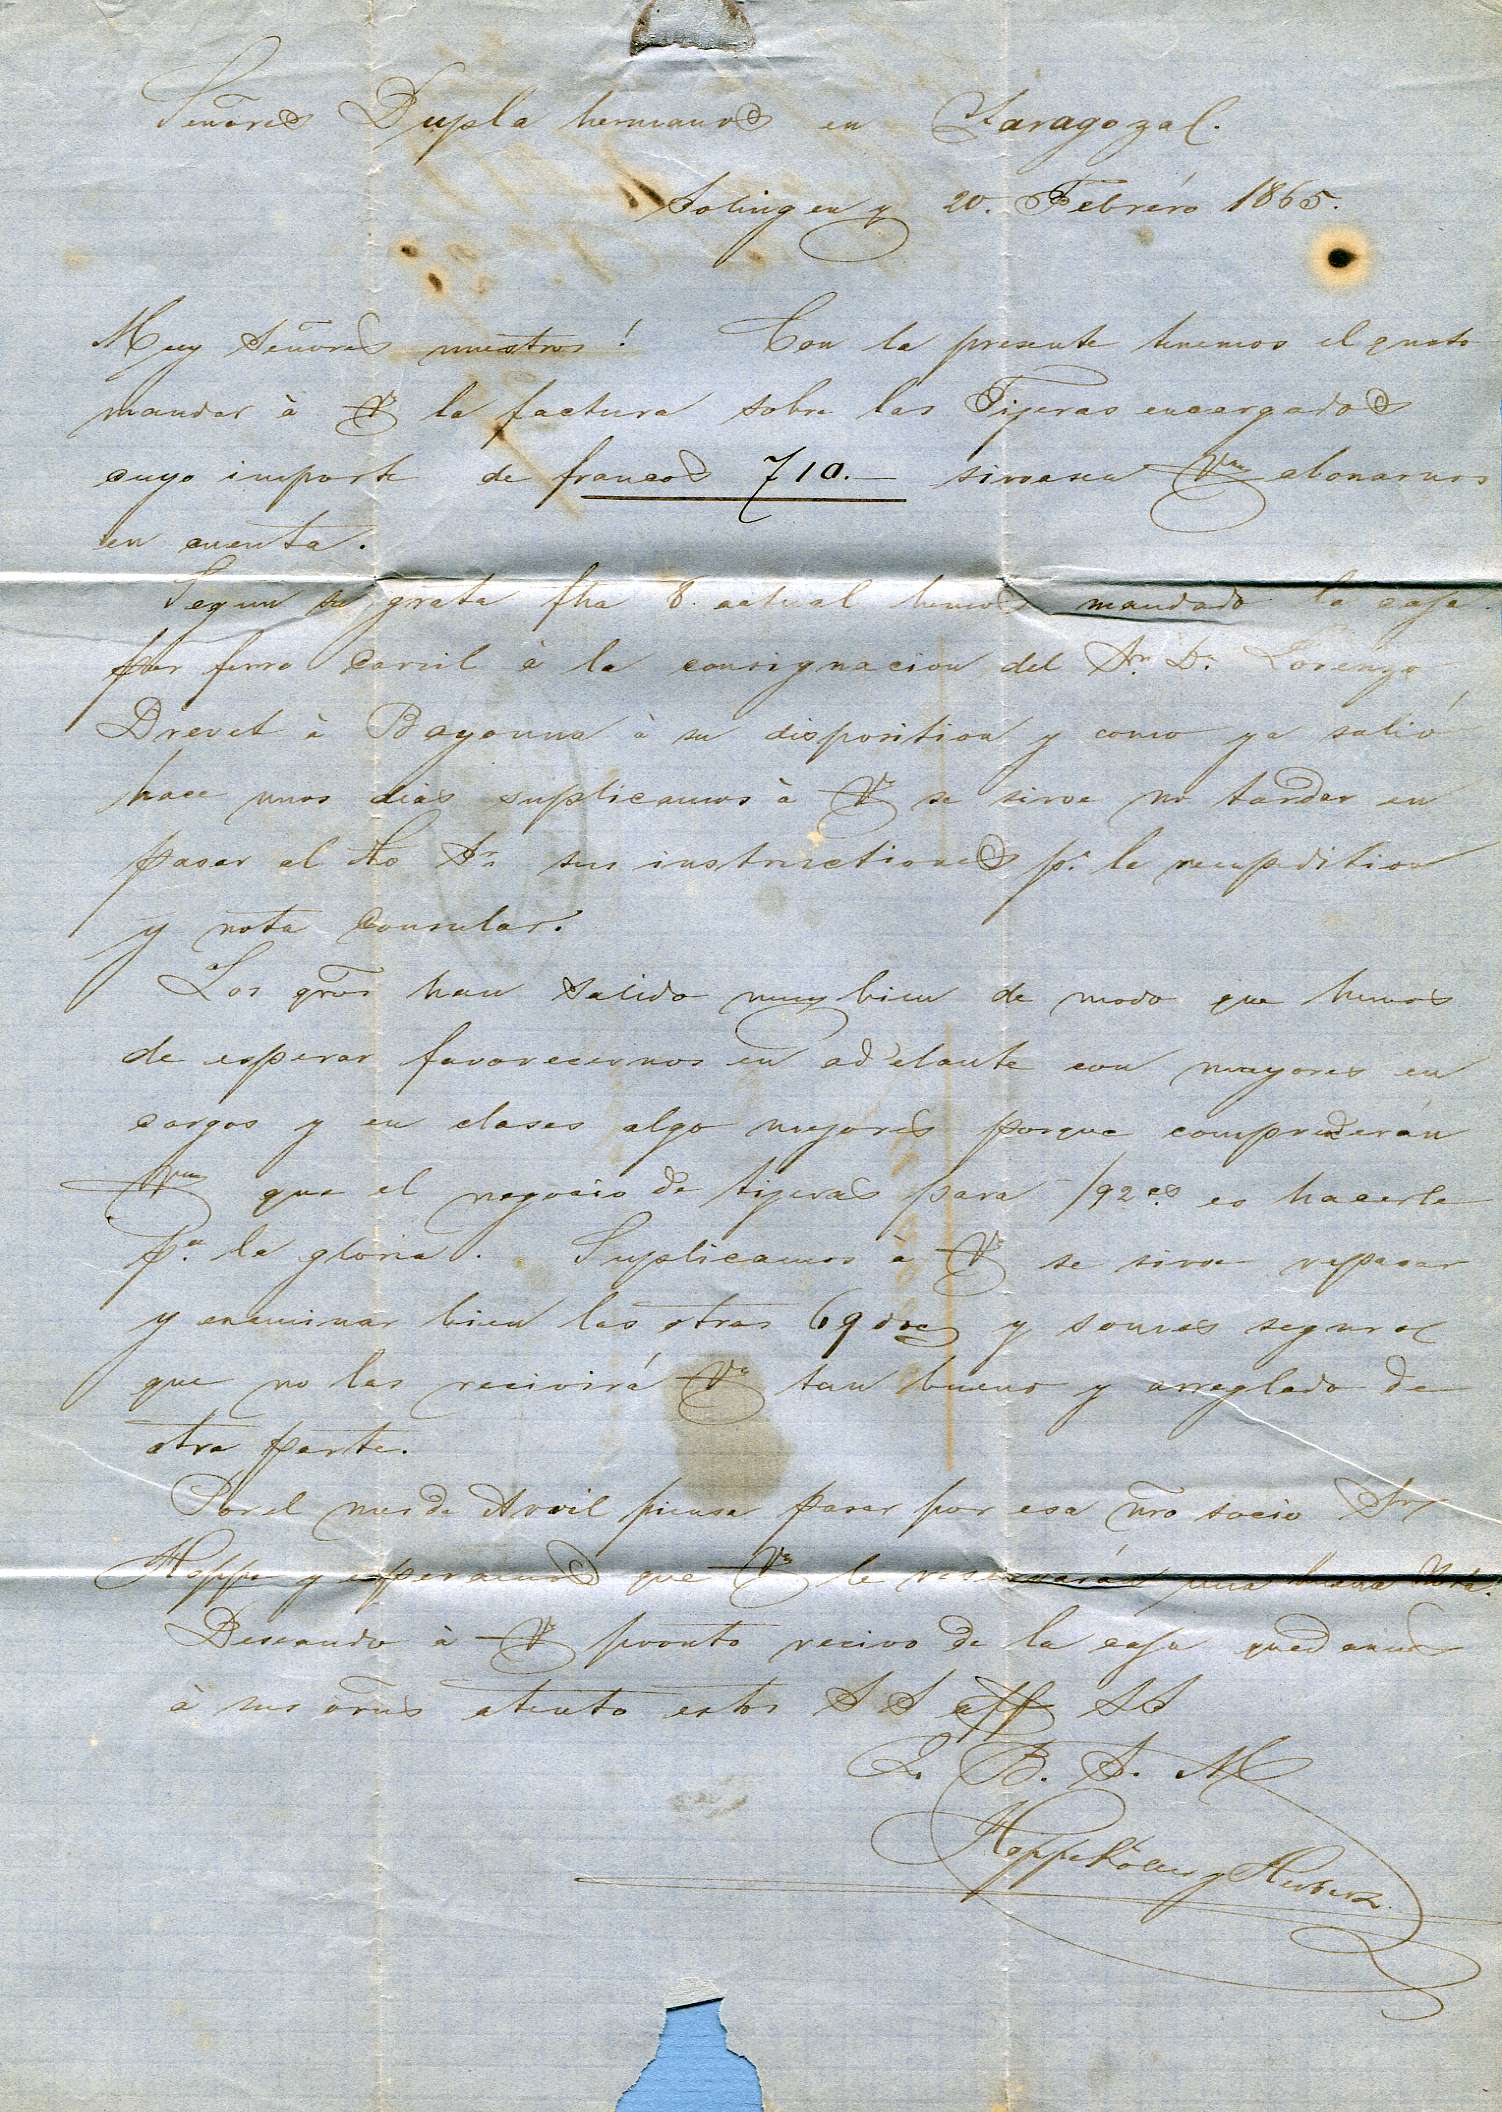 Señores Dupla hermanos en Zaragoza.
Solingen y 20. Febréro 1865.
Muy Señores nuestros! Con la presente tenemos el gusto
mandar à V la factura sobre las Tijeras encargados
cuyo importe de francos 710.— sirvasen Vms abonarnos
en cuenta.
Segun su grata fha 8. actual hemos mandado la caja
por ferro carril à la consignacion del Sr. Dn. Lorenzo
Drevet à Bayonna à su disposition y como ya salió
hace unos dias suplicamos à V se sirve no tardar en
pasar al dho Sr sus instructiones pa. la reexpedition
y nota consular.
Los gros han salido muy bien de modo que hemos
de esperar favorecernos en adelante con mayores en
cargos y en clases algo mejores porque comprederán
Vms que el negocio de tijeras para /92 es hacerle
pa. la gloria. Suplicamos à V se sirve repasar
y examinar bien las otras 69 doc y somos seguros
que no las recivirá V tan bueno y arreglado de
otra parte.
Por el mes de Avril piensa pasar por esa nro socio Sr
Hoppe y esperamos que Vm le reservarán una buena Nota.
Deseando à V pronto recivo de la caja quedamos
à sus orns atento estos S S aff SS
Q. B. S. M
Hoppe Köller y Herberz